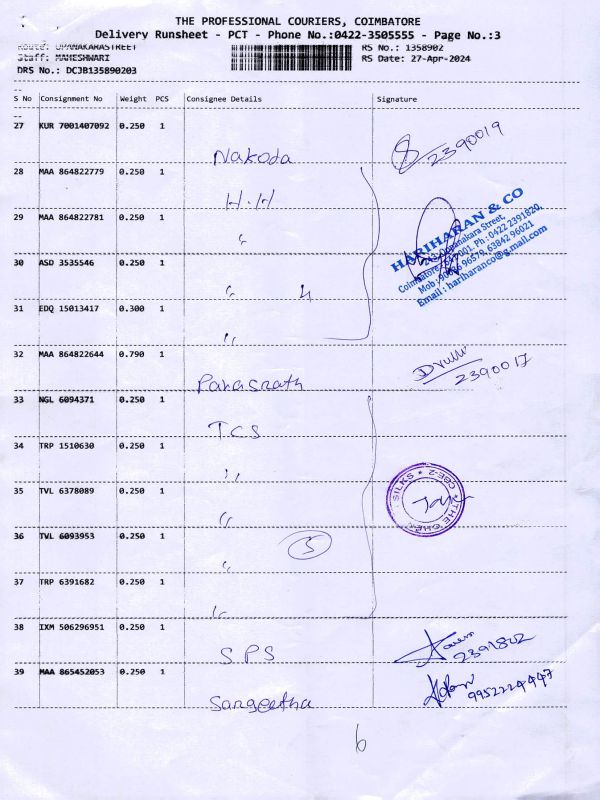 THE PROFESSIONAL COURIERS, COIMBATORE
Delivery Runsheet - PCT - Phone No.:0422-3505555 - Page No.:3
Route: UPANAKARASTREET RS No.: 1358902
Staff: MAHESHWARI RS Date: 27-Apr-2024
DRS No.: DCJB135890203
S No Consignment No Weight PCS Consignee Details Signature
27 KUR 7001407092 0.250 1
Nakoda 2390019
28 MAA 864822779 0.250 1
H.H
29 MAA 864822781 0.250 1
"
HARIHARAN & CO
Upanakara Street,
Coimbatore 001. Ph : 0422 2391820,
Mob : 96579, 63842 96021
Email : hariharanco@gmail.com
30 ASD 3535546 0.250 1
" 4
31 EDQ 15013417 0.300 1
"
32 MAA 864822644 0.790 1
Parasnath 2390017
33 NGL 6094371 0.250 1
TCS
34 TRP 1510630 0.250 1
"
35 TVL 6378089 0.250 1
"
THE CHENNAI SILKS * CBE-2 *
36 TVL 6093953 0.250 1
" 5
37 TRP 6391682 0.250 1
"
38 IXM 506296951 0.250 1
SPS 2391802
39 MAA 865452053 0.250 1
Sangeetha 9952224447
6